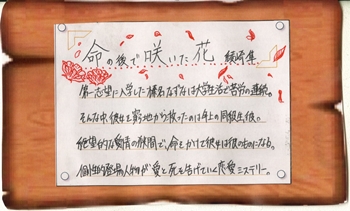 命の後で咲いた花 綾崎隼
第一志望に入学した榛名なずなは大学生活と苦労の連続。
そんな中、彼女を窮地から救ったのは年上の同級生
絶望的な愛情の狭間で、命をかけて彼女は彼のものになる。
個性的登場人物が愛と死を告げていく恋愛ミステリー。